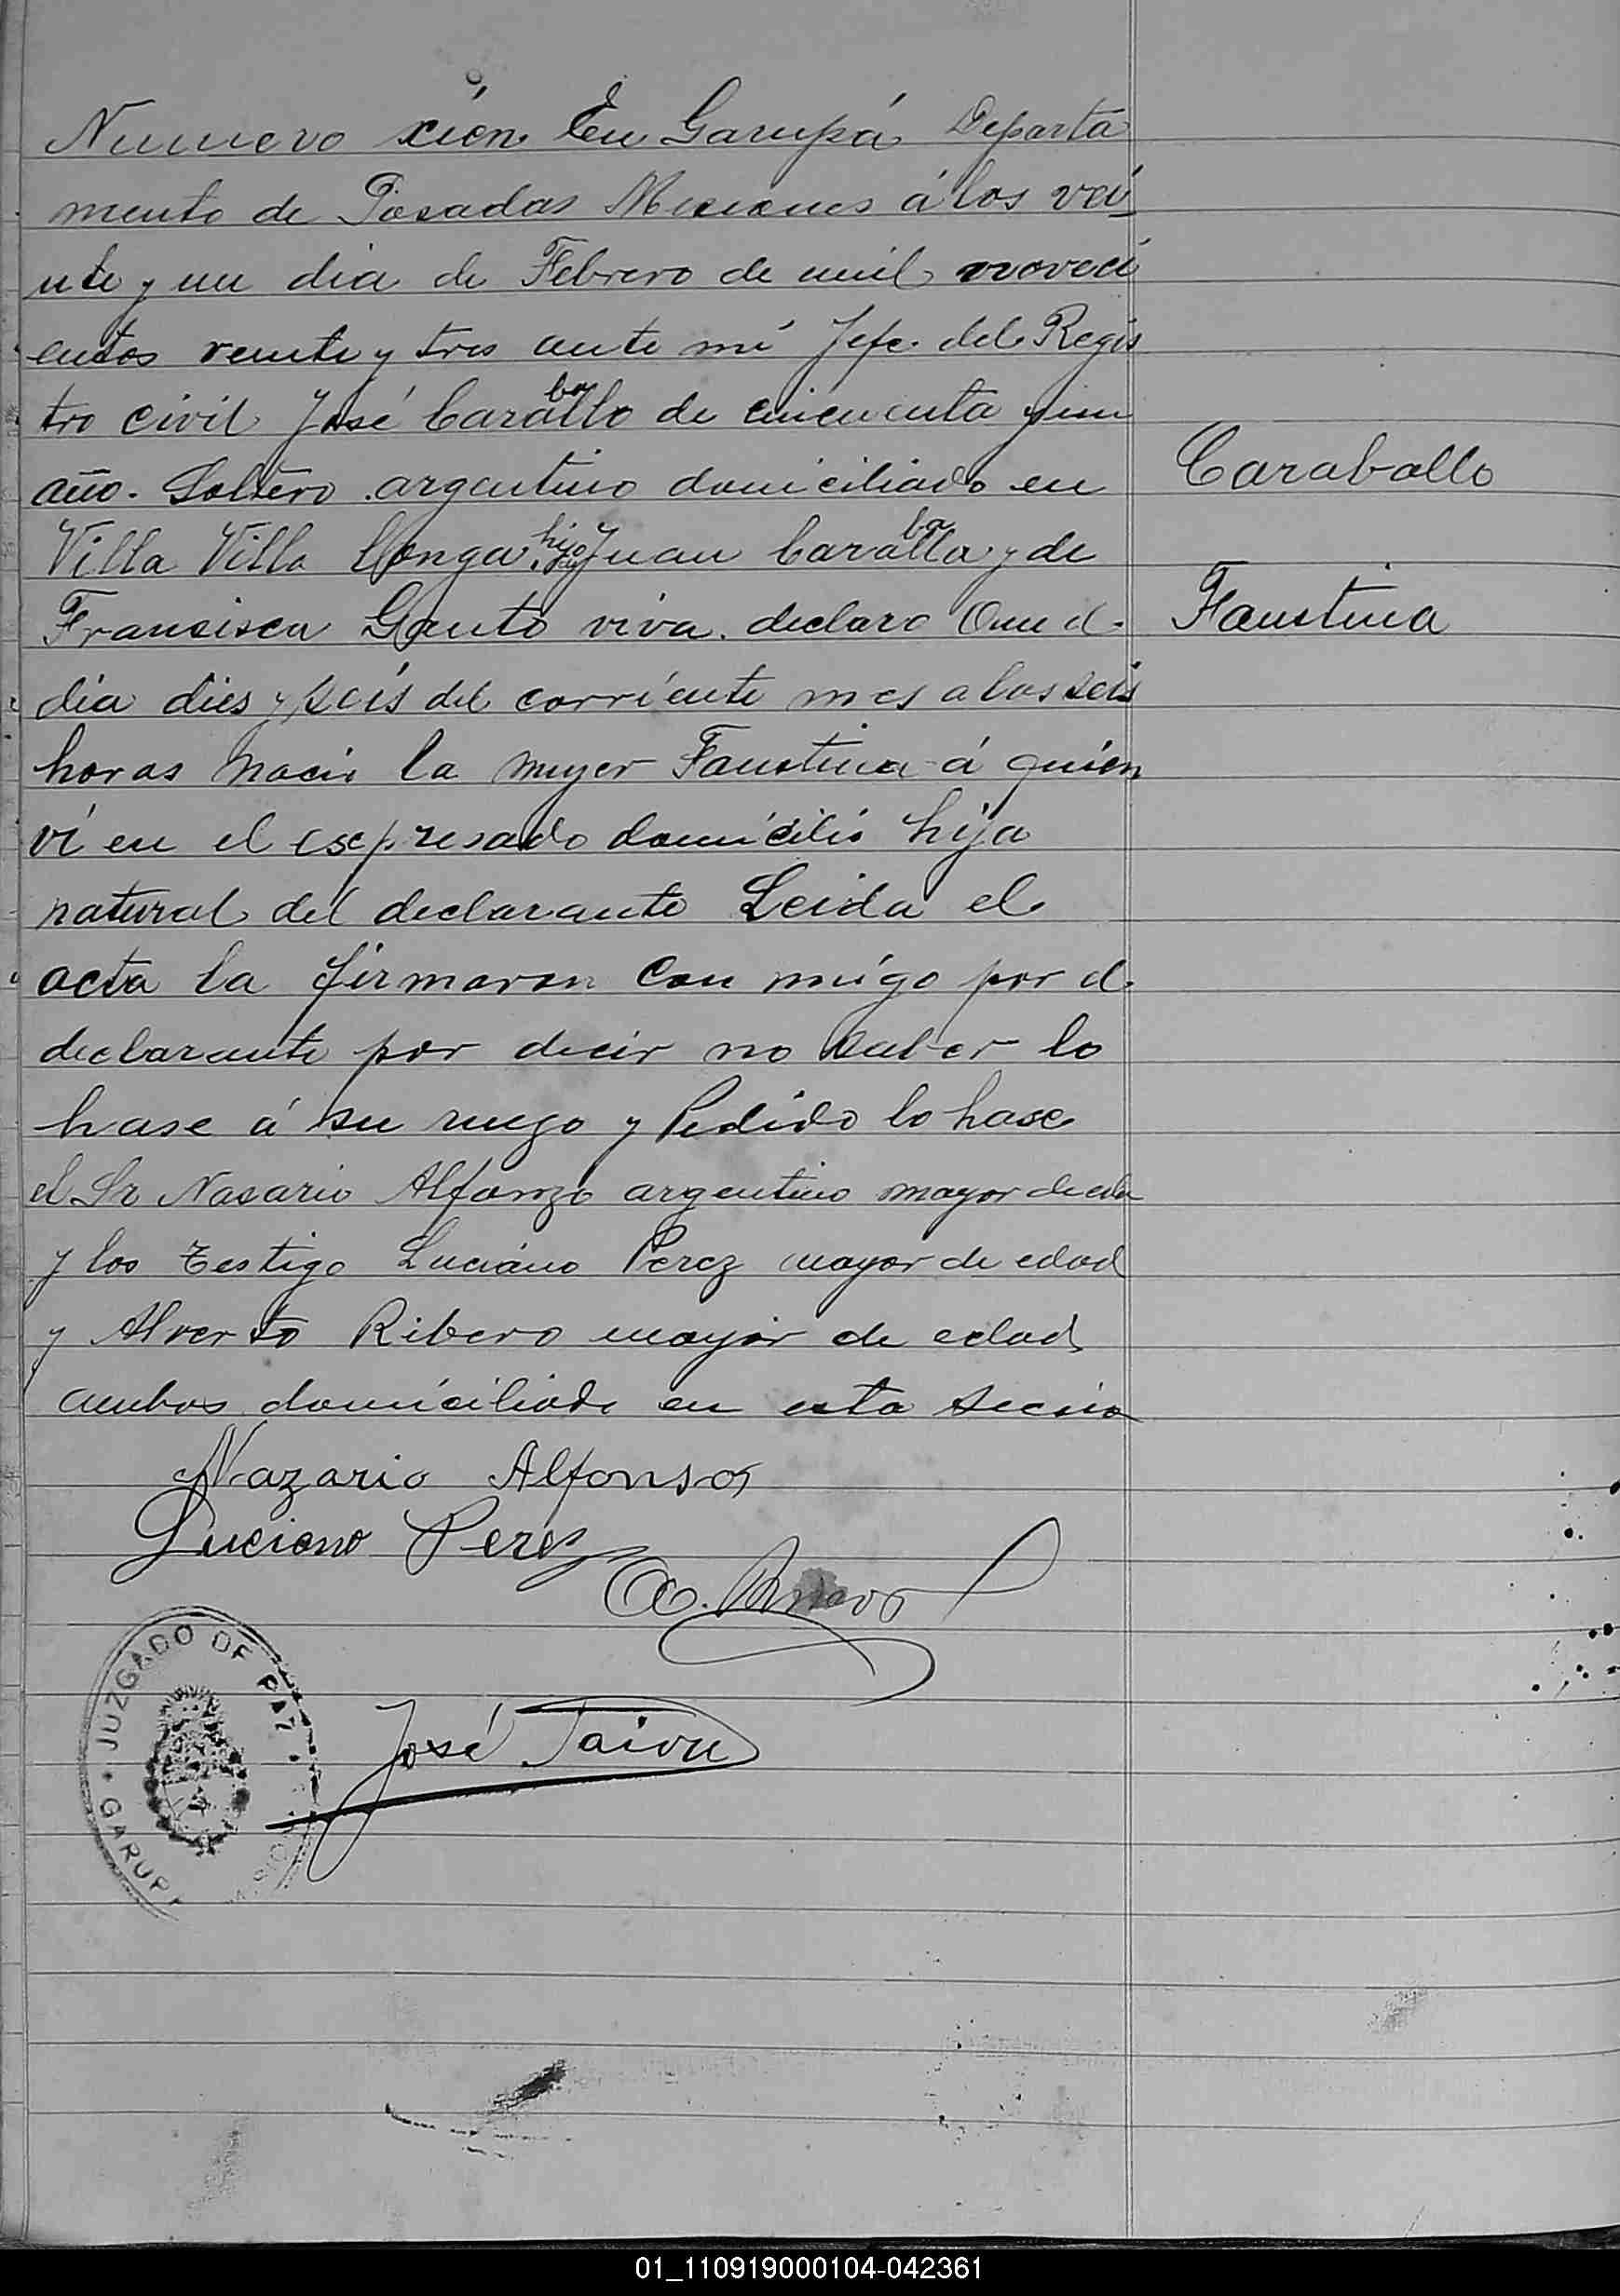 Numero cien En Garupá Departa
mento de Posadas Misiones á los vei
nte y un dia de Febrero de mil noveci
entos veinte y tres ante mi Jefe del Regis
tro civil José Caraballo de cincuenta y un
año. Soltero argentino domiciliado en
Villa Villa Longa hijo de Juan Caraballa y de
Francisca Gauto viva. declaro Que el
dia dies y seis del corriente mes a las seis
horas nacio la mujer Faustina á quien
vi en el espresado domicilio hija
natural del declarante Leida el
acta la firmaron con migo por el
declarante por decir no saber lo
hase á su ruego y Pedido lo hase
el Sr Nasario Alfonzo argentino mayor de eda
y los Testigo Luciano Perez mayor de edad
y Alverto Ribero mayor de edad
ambos domiciliado en esta seccio
Caraballo
Faustina
Nazario Alfonso
Luciano Perez
JUZGADO DE PAZ
GARUP
José
01_110919000104-042361